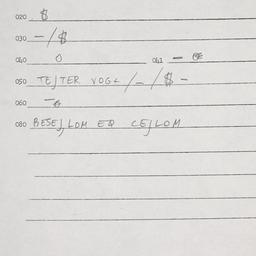 020 $
030 - / $
040 0 041 -
050 TE / TER VOGL / - / $ -
060 -
080 BESE / LOM EQ CE / LOM